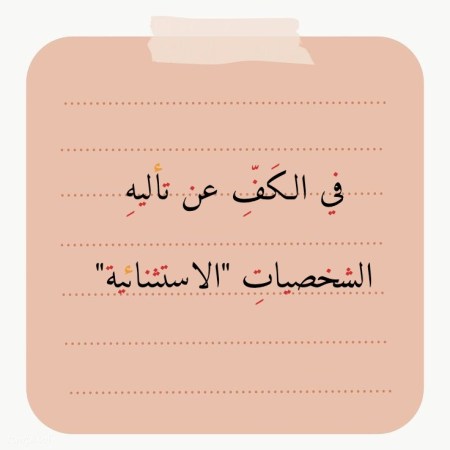 في الكَفِّ عن تأليهِ
الشخصياتِ "الاستثنائية"